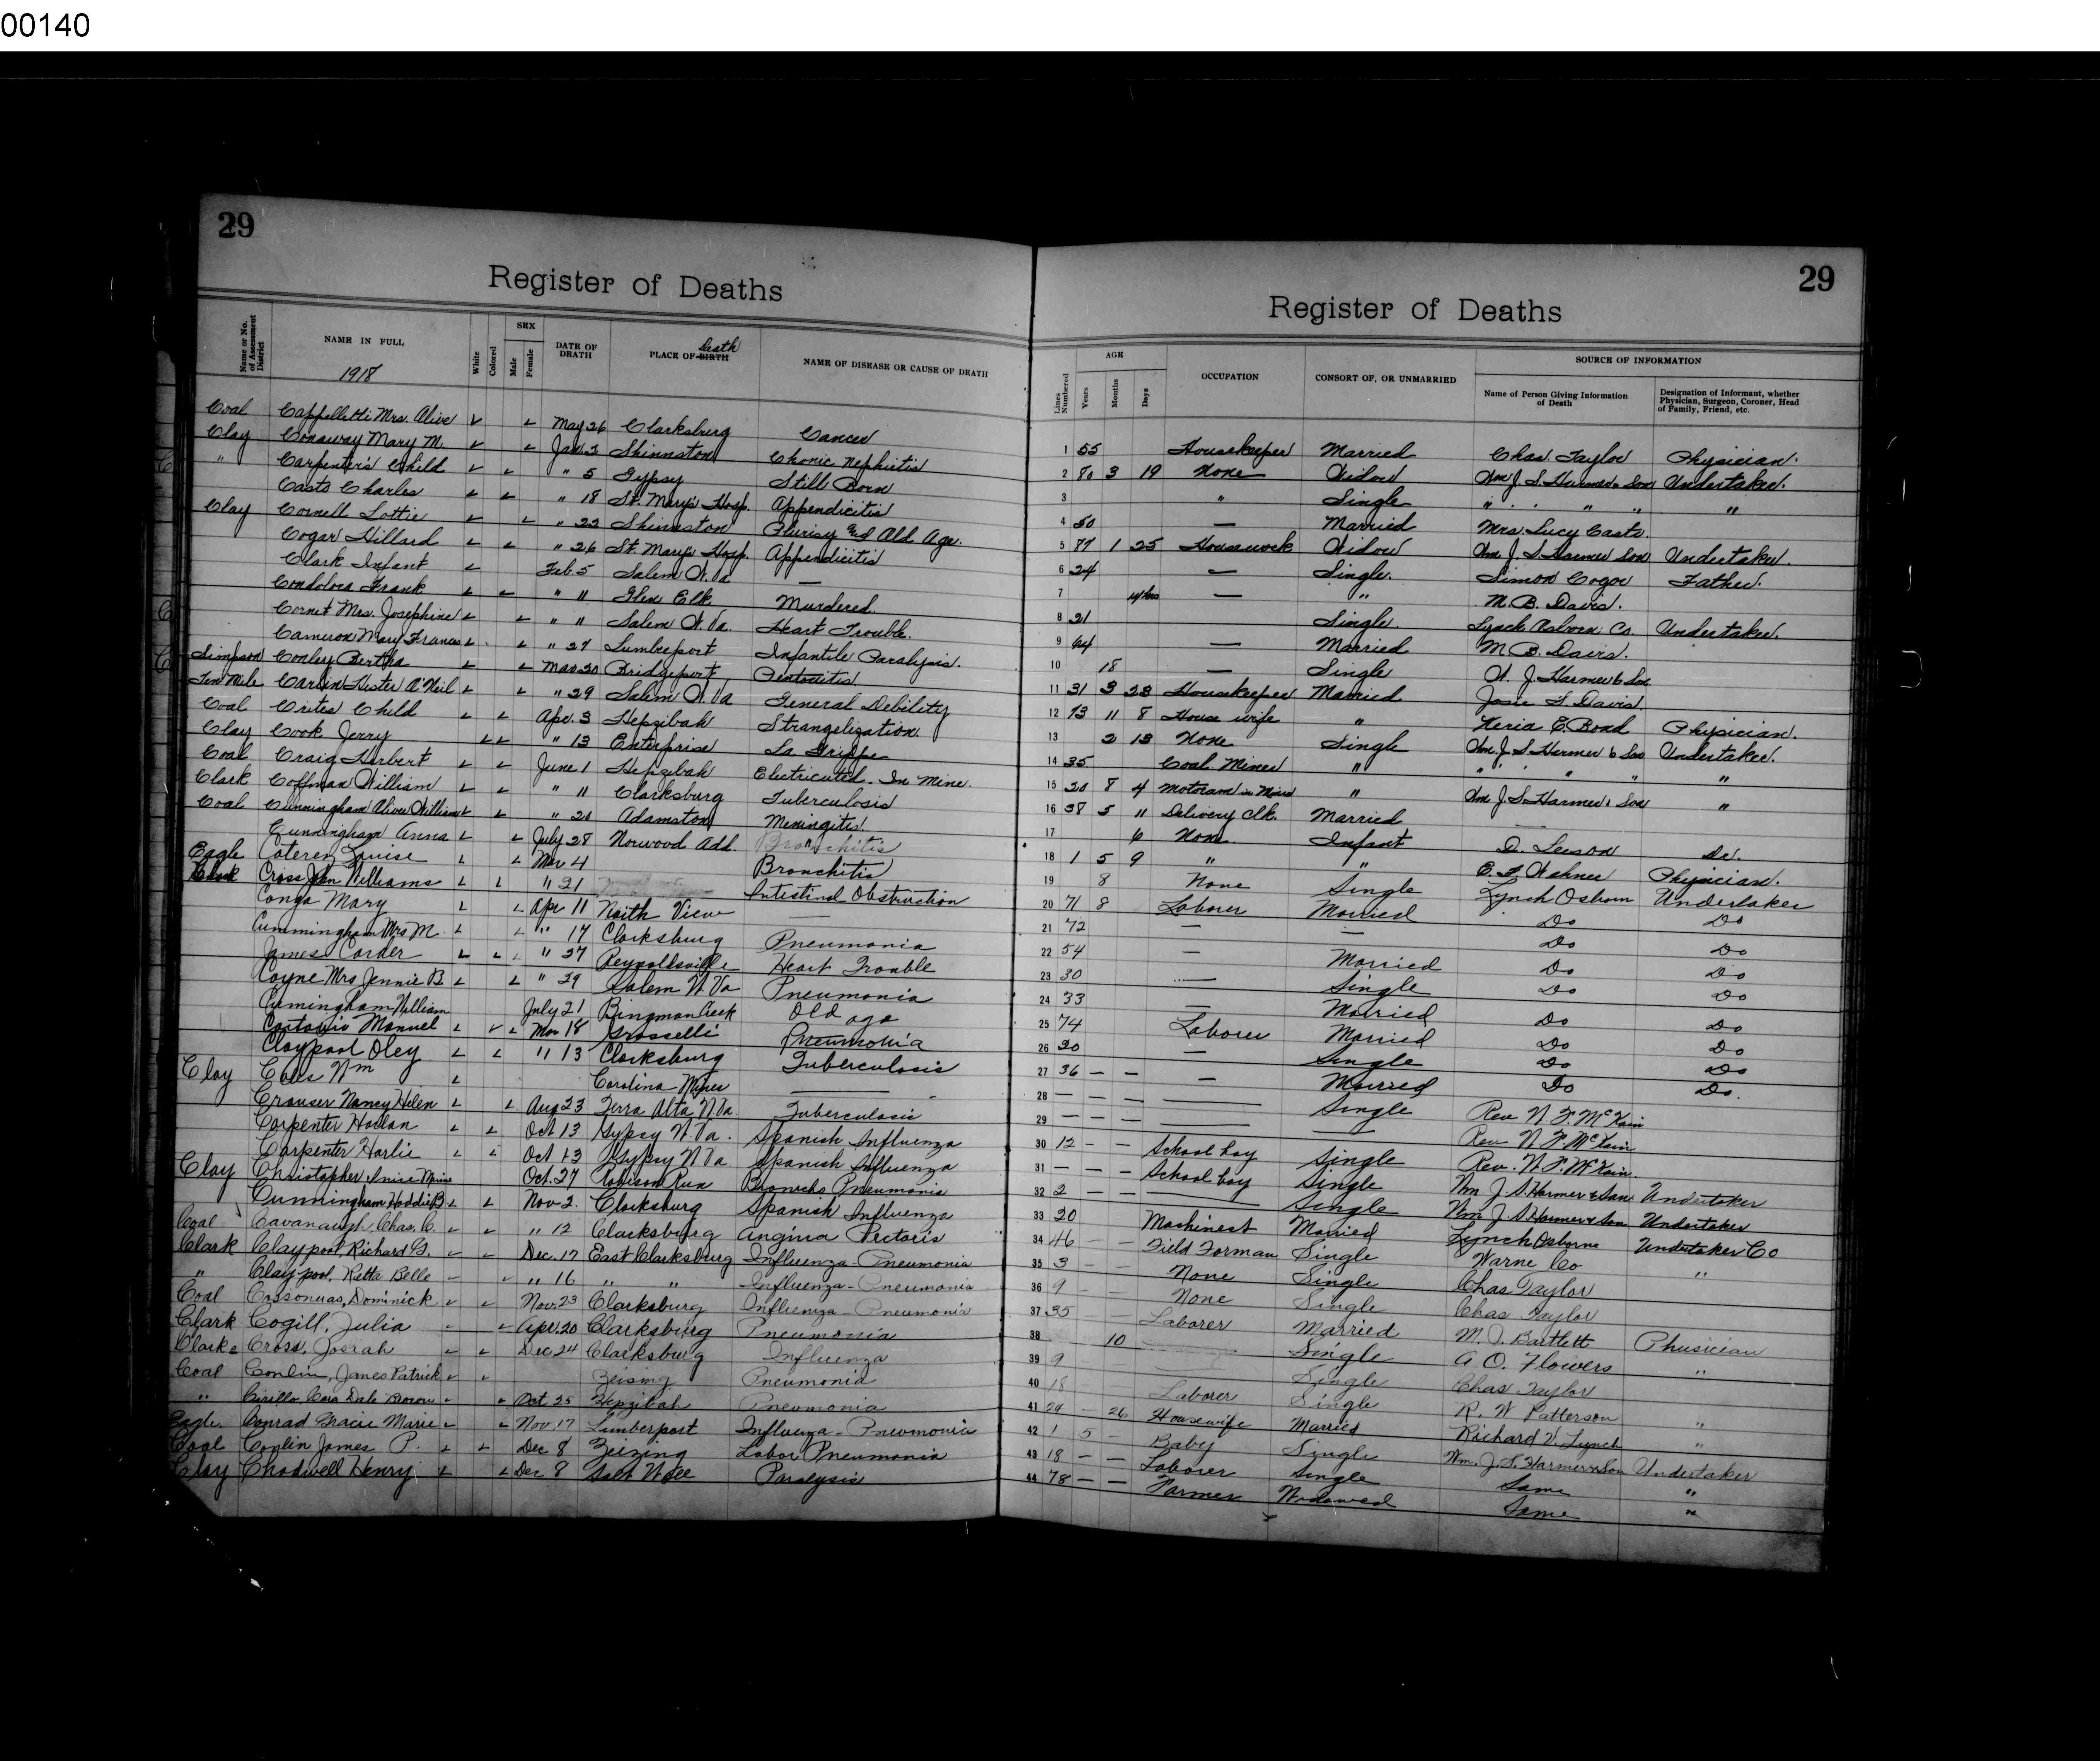 00140
29
Register of Deaths
Name or No. of Assessment District
NAME IN FULL
1918
White
Colored
SEX
Male
Female
DATE OF DEATH
PLACE OF BIRTH Death
NAME OF DISEASE OR CAUSE OF DEATH
Coal Cappelletti Mrs. Alice May 26 Clarksburg Cancer
Clay Conaway Mary M. Jan. 3 Shinnston Chonic Nephritis
" Carpenter's Child " 5 Gypsy Still Born
Casto Charles " 18 St. Mary's Hosp. Appendicitis
Clay Cornell Lottie " 22 Shinnston Plurisy and Old Age.
Cogar Hillard " 26 St. Mary's Hosp. Appendicitis
Clark Infant Feb. 5 Salem W. Va —
Frank " 11 Glen Elk Murdered.
Cornet Mrs. Josephine " 11 Salem W. Va. Heart Trouble.
Cameron Mary Frances " 27 Lumberport Infantile Paralysis.
Simpson Conley Bertha Mar. 20 Bridgeport
Ten Mile Hester O'Neil " 29 Salem W. Va General Debility
Coal Crites Child Apr. 3 Hepzibah Strangelization
Clay Cook Jerry " 13 Enterprise La Grippe
Coal Craig Herbert June 1 Hepzibah Electricuted - In Mine.
Clark Coffman William " 11 Clarksburg Tuberculosis
Coal Cunningham William " 20 Adamston Meningitis.
Cunningham Anna July 28 Norwood Add. Bronchitis
Eagle Louise Mar 4 Bronchitis
Clark Cross John Williams " 21 Intestinal Obstruction
Conga Mary Apr 11 North View —
Cunningham Mrs M. " 17 Clarksburg Pneumonia
James Corder " 27 Reynoldsville Heart Trouble
Coyne Mrs Jennie B " 29 Salem W. Va Pneumonia
Cunningham William July 21 Bingman Creek Old age
Manuel Mar 18 Grosselli Pneumonia
Claypool Oley " 13 Clarksburg Tuberculosis
Clay Coles Wm Carolina Mines —
Crouser Nancy Helen Aug 23 Terra Alta W Va Tuberculosis
Carpenter Oct 13 Gypsy W. Va. Spanish Influenza
Carpenter Harlie Oct 13 Gypsy W Va Spanish Influenza
Clay Christopher Oct. 27 Robison Run Pneumonia
Cunningham B Nov 2. Clarksburg Spanish Influenza
Coal Cavanaugh, Chas. C. " 12 Clarksburg Angina Pectoris
Clark Claypool Richard G. Dec. 17 East Clarksburg Influenza - Pneumonia
" Claypool, Retta Belle " 16 " " Influenza - Pneumonia
Coal Dominick Nov. 23 Clarksburg Influenza - Pneumonia
Clark Cogill, Julia Apr. 20 Clarksburg Pneumonia
Clarks Cross, Josiah Dec 24 Clarksburg Influenza
Coal Conlin, James Patrick Zeising Pneumonia
" Cirillo Cora Dale Oct. 25 Hepzibah Pneumonia
Eagle Conrad Gracie Marie Nov. 17 Lumberport Influenza - Pneumonia
Coal Conlin James P. Dec 8 Zeizing Labor Pneumonia
Clay Chadwell Henry Dec 8 Salt Well Paralysis
29
Register of Deaths
Lines Numbered
AGE
Years
Months
Days
OCCUPATION
CONSORT OF, OR UNMARRIED
SOURCE OF INFORMATION
Name of Person Giving Information of Death
Designation of Informant, whether Physician, Surgeon, Coroner, Head of Family, Friend, etc.
1 55 Housekeeper Married Chas Taylor Physician.
2 80 3 19 None Widow Wm J. S. Harmer & Son Undertaker.
3 " Single " " " " "
4 50 — Married Mrs. Lucy Casto.
5 87 1 25 Housework Widow Wm. J. S. Harmer Son Undertaker.
6 24 — Single. Simon Cogar Father.
7 4 hrs — " M. B. Davis.
8 21 Single. Lynch Osborn Co. Undertaker.
9 64 — Married M. B. Davis.
10 18 — Single W. J. Harmer & Son
11 31 3 28 Housekeeper Married Josie F. Davis.
12 73 11 8 House wife " Xeria E. Bond Physician.
13 2 13 None Single Wm. J. S. Harmer & Son Undertaker.
14 35 Coal Miner " " " " " "
15 20 8 4 Motoram in Mine " Wm J. S. Harmer & Son "
16 38 5 11 Delivery Clk. Married
17 6 None Infant D. Leeson Dr.
18 1 5 9 " " Physician.
19 8 None Single Lynch Osborn Undertaker
20 71 8 Laborer Married Do Do
21 72 — — Do Do
22 54 — Married Do Do
23 30 — Single Do Do
24 33 — Married Do Do
25 74 Laborer Married Do Do
26 30 — Single Do Do
27 36 — — — Married Do Do.
28 — — — — Single Rev N. F. McKain
29 — — — — — Rev N. F. McKain
30 12 — — School boy Single Rev. N. F. McKain.
31 — — — School boy Single Wm J. S. Harmer & Son Undertaker
32 2 — — — Single Wm. J. S. Harmer & Son Undertaker
33 20 Machinest Married Lynch Osborne Undertaker Co
34 46 — — Field Forman Single Warne Co "
35 3 — — None Single Chas Taylor
36 9 — — None Single Chas Taylor
37 35 — — Laborer Married M. D. Bartlett Phusician
38 10 Single A O. Flowers "
39 9 — Single Chas Taylor
40 18 Laborer Single R. W Patterson "
41 29 - 26 Housewife Married Richard V. Lynch "
42 1 5 - Baby Single Wm. J. S. Harmer & Son Undertaker
43 18 — — Laborer Single Same "
44 78 — — Farmer Widowed Same "